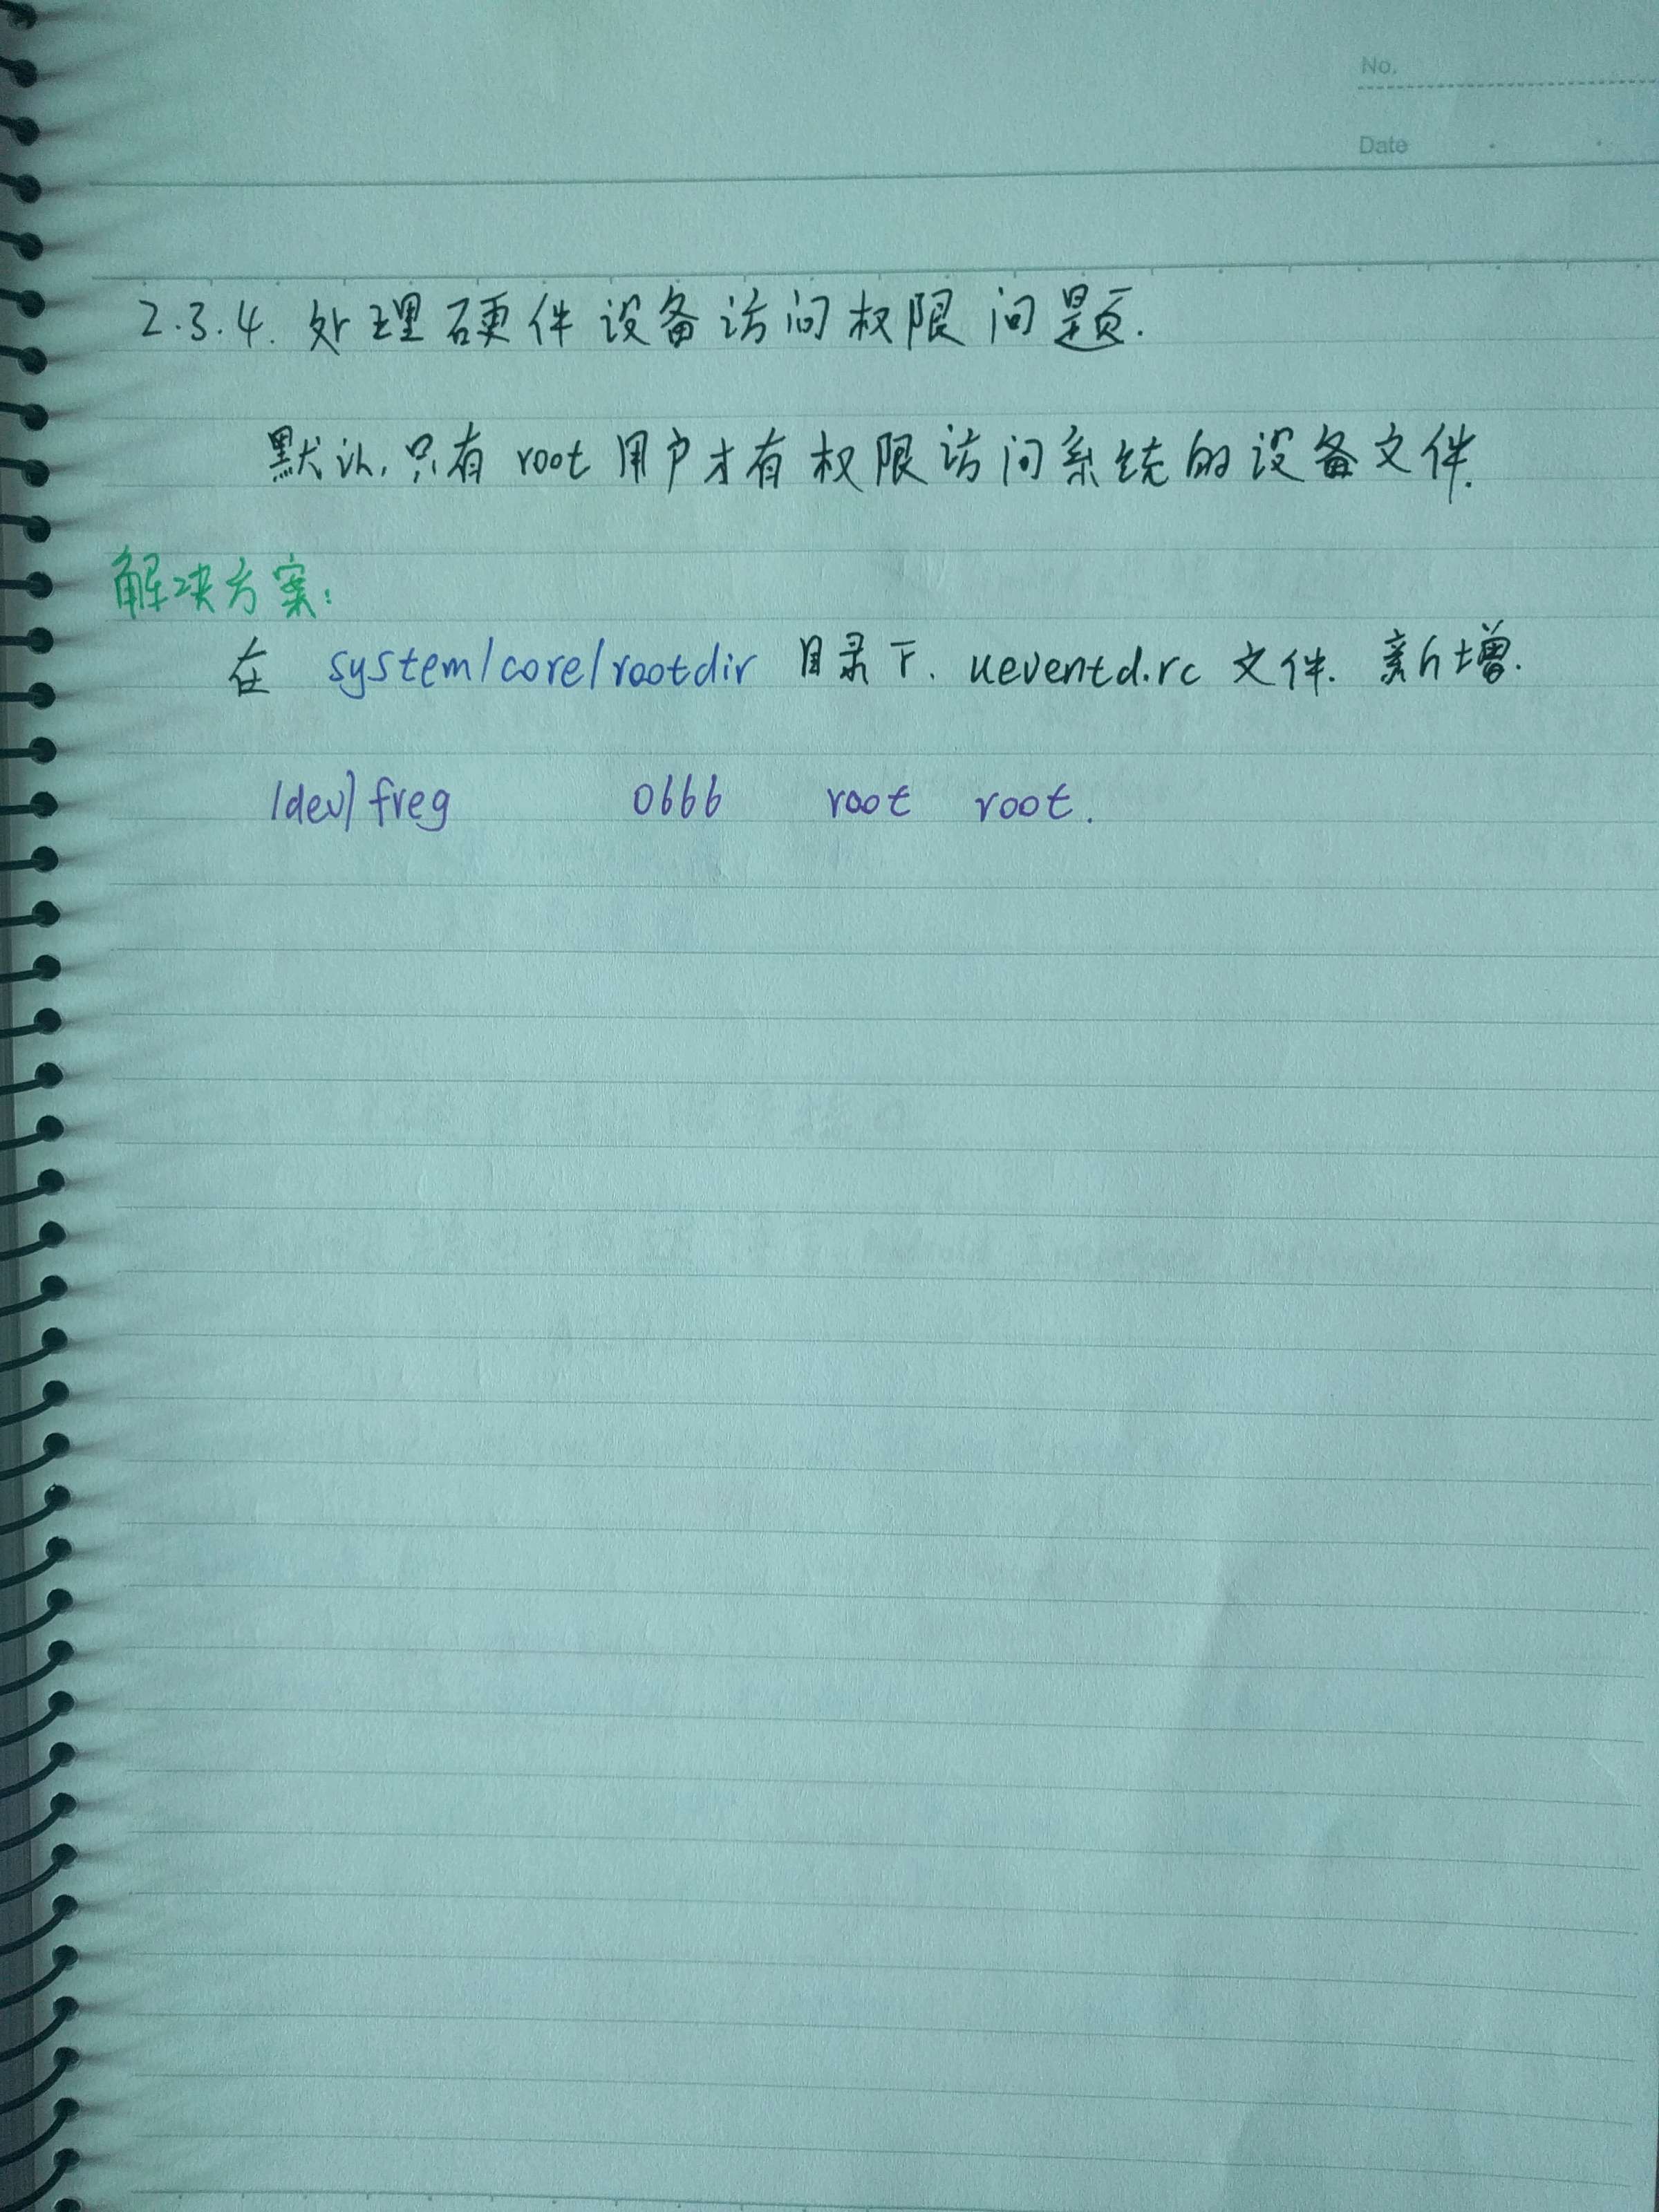 No.
Date
2.3.4. 处理硬件设备访问权限问题.
默认,只有 root 用户才有权限访问系统的设备文件.
解决方案:
在 system/core/rootdir 目录下. ueventd.rc 文件. 新增.
/dev/freg 0666 root root.